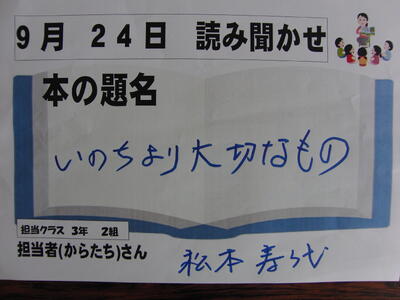 ９月 ２４日 読み聞かせ
本の題名
いのちより大切なもの
担当クラス 3年 2組
担当者(からたち)さん
松本 寿々代